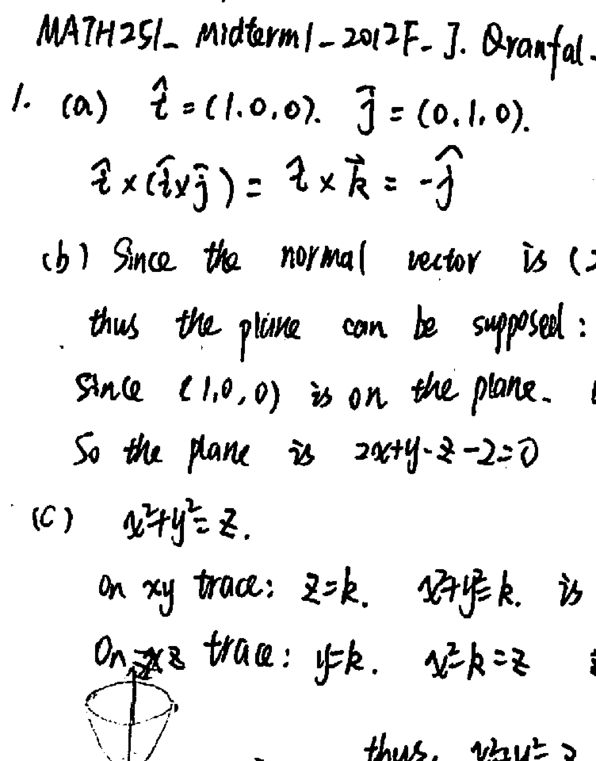 MATH251- Midterm1-2012F- J. Qranfal-
1. (a) î = (1.0.0). ĵ = (0.1.0).
î×(î×ĵ) = î×k⃗ = -ĵ
(b) Since the normal vector is (2
thus the plane can be supposed:
Since (1,0,0) is on the plane.
So the plane is 2x+y-z-2=0
(C) x²+y²=z.
On xy trace: z=k. x²+y²=k. is
On xz trace: y=k. x²-k=z
thus. x²+y²=z